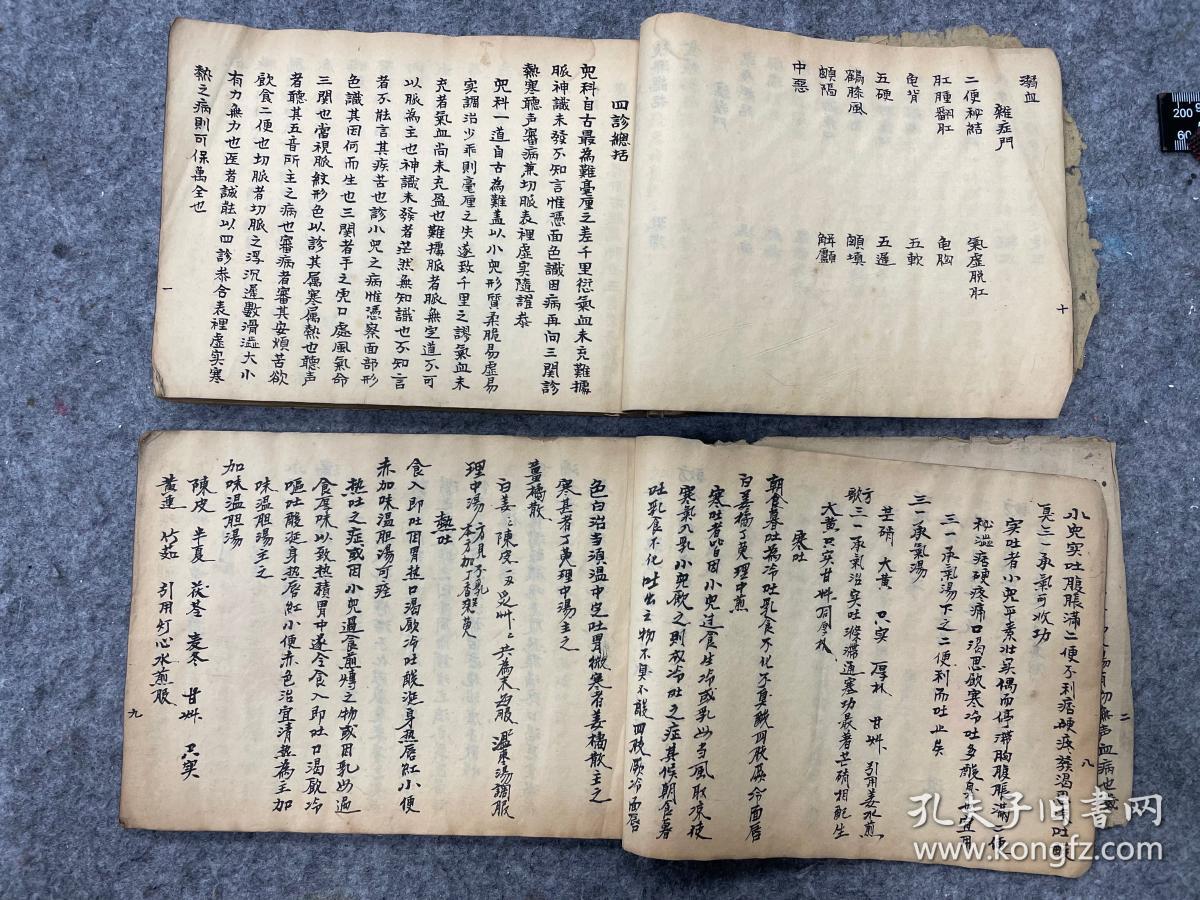 溺血
雜症門
二便秘結 氣虛脫肛
肛腫翻肛 龟胸
龟背 五軟
五硬 五遲
鶴膝風 顖填
顖陷 解顱
中惡
十
四診總括
兒科自古最為難毫厘之差千里愆氣血未充難據
脈神識未發不知言惟憑面色識因病再向三関診
熱寒聽声審病兼切脈表裡虛实隨證叅
兒科一道自古為難盖以小兒形質柔脆易虛易
实調治少乖則毫厘之失遂致千里之謬氣血未
充者氣血尚未充盈也難據脈者脈無定道不可
以脈為主也神識未發者茫然無知識也不知言
者不能言其疾苦也診小兒之病惟憑察面部形
色識其因何而生也三関者手之虎口處風氣命
三関也當視脈紋形色以診其属寒属熱也聽声
者聽其五音所主之病也審病者審其安煩苦欲
飲食二便也切脈者切脈之浮沉遲數滑澁大小
有力無力也医者誠能以四診叅合表裡虛实寒
熱之病則可保萬全也
一
小兒实吐腹脹滿二便不利痞硬疼發渴吐酸
臭三一承氣可收功
实吐者小兒平素壮实偶而停滯胸腹脹滿二便
秘澁痞硬疼痛口渴思飲寒冷吐多酸臭宜用
三一承氣湯下之二便利而吐止矣
三一承氣湯
芒硝 大黃 只实 厚朴 甘艸 引用姜水煎
歌 三一承氣治实吐滌滯通塞功最著芒硝相配生
大黃只实甘艸同厚朴
寒吐
朝食暮吐為冷吐乳食不化不臭酸四肢厥冷面唇
白姜橘丁萸理中煎
寒吐者皆因小兒过食生冷或乳母当風取凉使
寒氣入乳小兒飲之則成冷吐之症其候朝食暮
吐乳食不化吐出之物不臭不酸四肢厥冷面唇
八
色白治当須温中定吐胃微寒者姜橘散主之
寒甚者丁萸理中湯主之
薑橘散
白姜二 陳皮一又 炙艸二 共為末每服 温東湯調服
理中湯 方見不乳 本方加丁香吳萸
熱吐
食入即吐因胃热口渴飲冷吐酸涎身热唇紅小便
赤加味温胆湯可痊
热吐之症或因小兒過食煎煿之物或因乳母過
食厚味以致热積胃中遂令食入即吐口渴飲冷
嘔吐酸涎身热唇紅小便赤色治宜清热為主加
味温胆湯主之
加味温胆湯
陳皮 半夏 茯苓 麦冬 甘艸 只实
黃連 竹茹 引用灯心水煎服
九
二
200
孔夫子旧書网
www.kongfz.com